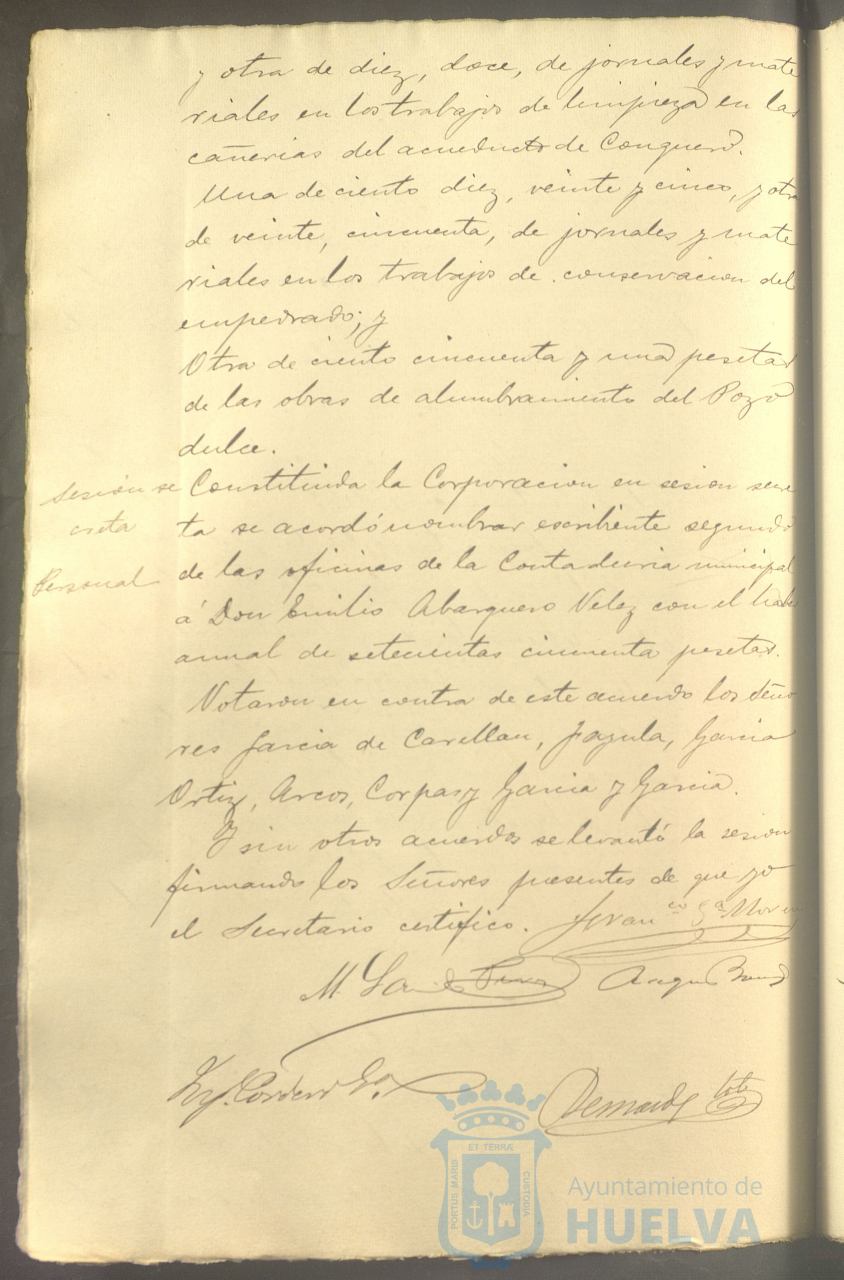 y otra de diez, doce, de jornales y mate
riales en los trabajos de limpieza en las
cañerias del acueducto de Conquero.
Una de ciento diez, veinte y cinco, y otra
de veinte, cincuenta, de jornales y mate
riales en los trabajos de conservacion del
empedrado; y
Otra de ciento cincuenta y una pesetas
de las obras de alumbramiento del Pozo
dulce.
Sesión se
creta
Constituida la Corporacion en sesion secre
ta se acordó nombrar escribiente segundo
Personal
de las oficinas de la Contaduria municipal
á Don Emilio Abarquero Velez con el haber
annal de setecientas cincuenta pesetas.
Votaron en contra de este acuerdo los Seño
res Garcia de Carellan, Jagula, Garcia
Ortiz, Arcos, Corpas y Garcia y Garcia.
Y sin otros acuerdos se levantó la sesion
firmando los Señores presentes de que yo
el Secretario certifico. Franco
M.
Cordero
ET TERRÆ
PORTUS MARIS
CUSTODIA
Ayuntamiento de
HUELVA